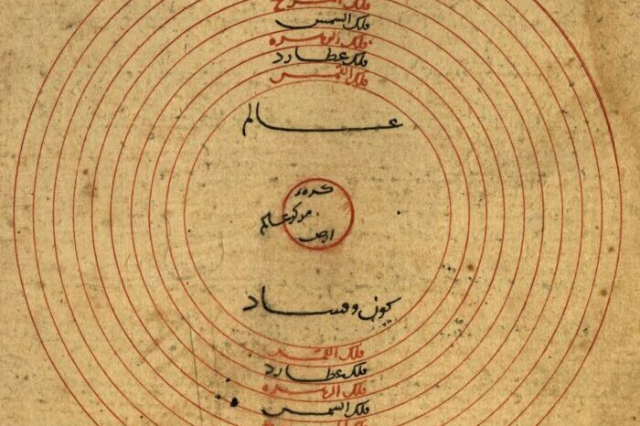 فلك المريخ
فلك الشمس
فلك الزهره
فلك عطارد
فلك القمر
عالم
كرهء
مركز عالم
ارض
كون و فساد
فلك القمر
فلك عطارد
فلك الزهره
فلك الشمس